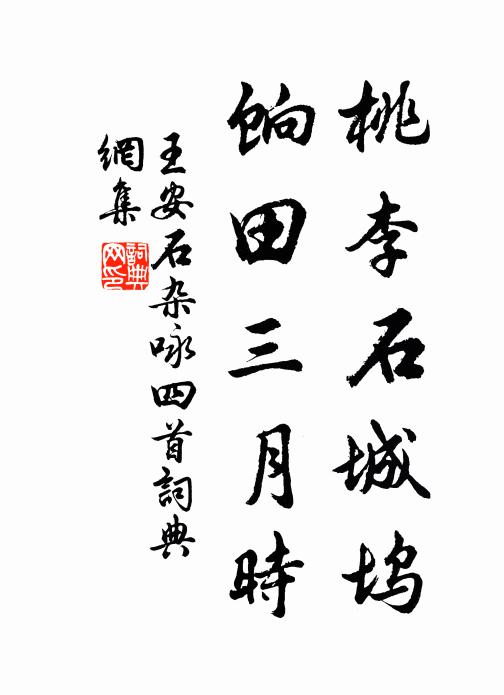 桃李石城塢
餉田三月時
王安石杂咏四首詞典
網集
詞典
网印